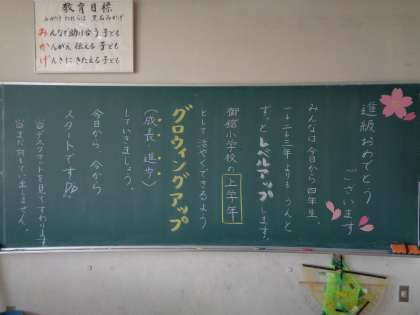 教育目標
みんなで助け合う子ども
かんがえ 伝える 子ども
げんきに きたえる 子ども
進級おめでとう
ございます
みんなは今日から四年生。
一・二・三年よりも うんと
ずっと レベルアップ します。
御舘小学校の 上学年
として 活やくできるよう
グロウィングアップ
(成長 進歩)
していきましょう。
今日から、今から
スタートです